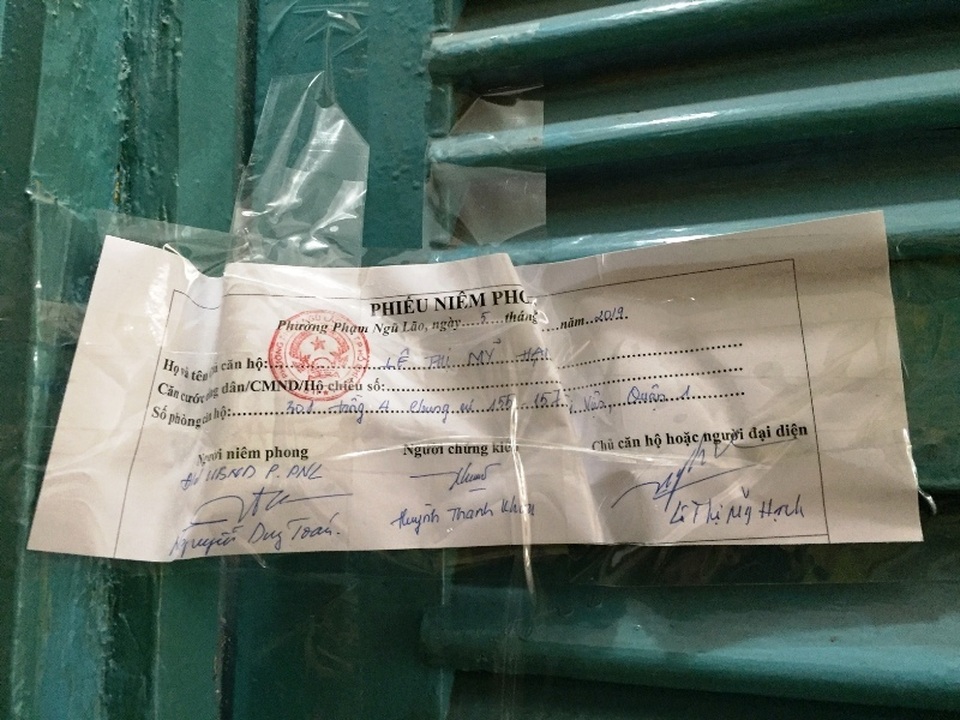 PHIẾU NIÊM PHO
Phường Phạm Ngũ Lão, ngày.....5.....tháng.........năm..2019..
Họ và tên căn hộ: LÊ THỊ MỸ HẠNH
Căn cước dân/CMND/Hộ chiếu số:
Số phòng căn hộ: 301 tầng 4 chung cư 155-157, Quận 1
Người niêm phong Người chứng kiến Chủ căn hộ hoặc người đại diện
UBND P. PNL
Nguyễn Duy Toán. Huỳnh Thanh Lê Thị Mỹ Hạnh